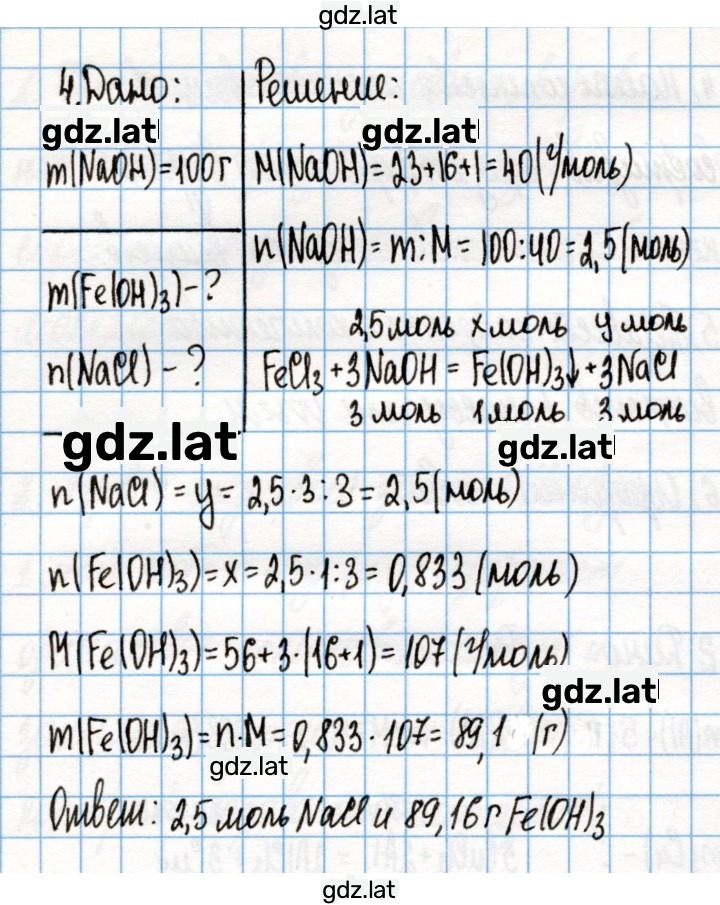 gdz.lat
4. Дано:
Решение:
gdz.lat
gdz.lat
m(NaOH)=100г
M(NaOH)=23+16+1=40(г/моль)
n(NaOH)=m:M=100:40=2,5(моль)
m(Fe(OH)₃)-?
2,5моль xмоль yмоль
n(NaCl)-?
FeCl₃+3NaOH=Fe(OH)₃↓+3NaCl
3моль 1моль 3моль
gdz.lat
gdz.lat
n(NaCl)=y=2,5·3:3=2,5(моль)
n(Fe(OH)₃)=x=2,5·1:3=0,833(моль)
M(Fe(OH)₃)=56+3·(16+1)=107(г/моль)
gdz.lat
m(Fe(OH)₃)=n·M=0,833·107=89,1 (г)
gdz.lat
Ответ: 2,5моль NaCl и 89,16г Fe(OH)₃
gdz.lat